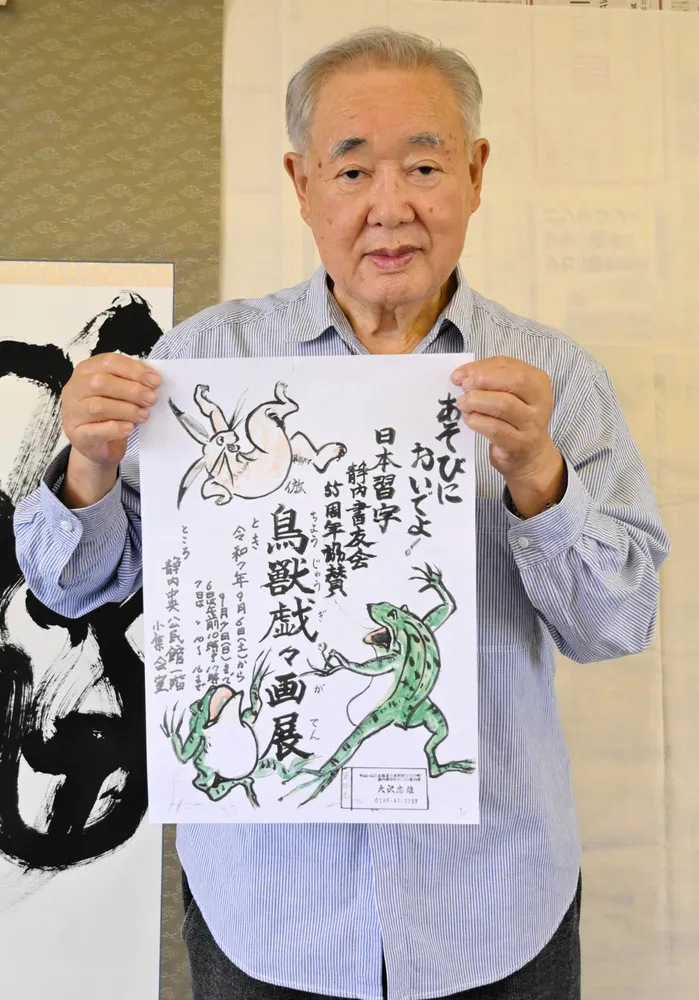 あそびに
おいでよ!
日本習字
静内書友会
55周年協賛
倣
鳥獣戯々画展
ちょうじゅうぎが てん
とき
令和7年9月6日(土)から
9月7日(日)まで
6日は午前10時〜17時
7日は 〃 10〜16まで
ところ
静内中央公民館一階
小集会室
大沢忠雄